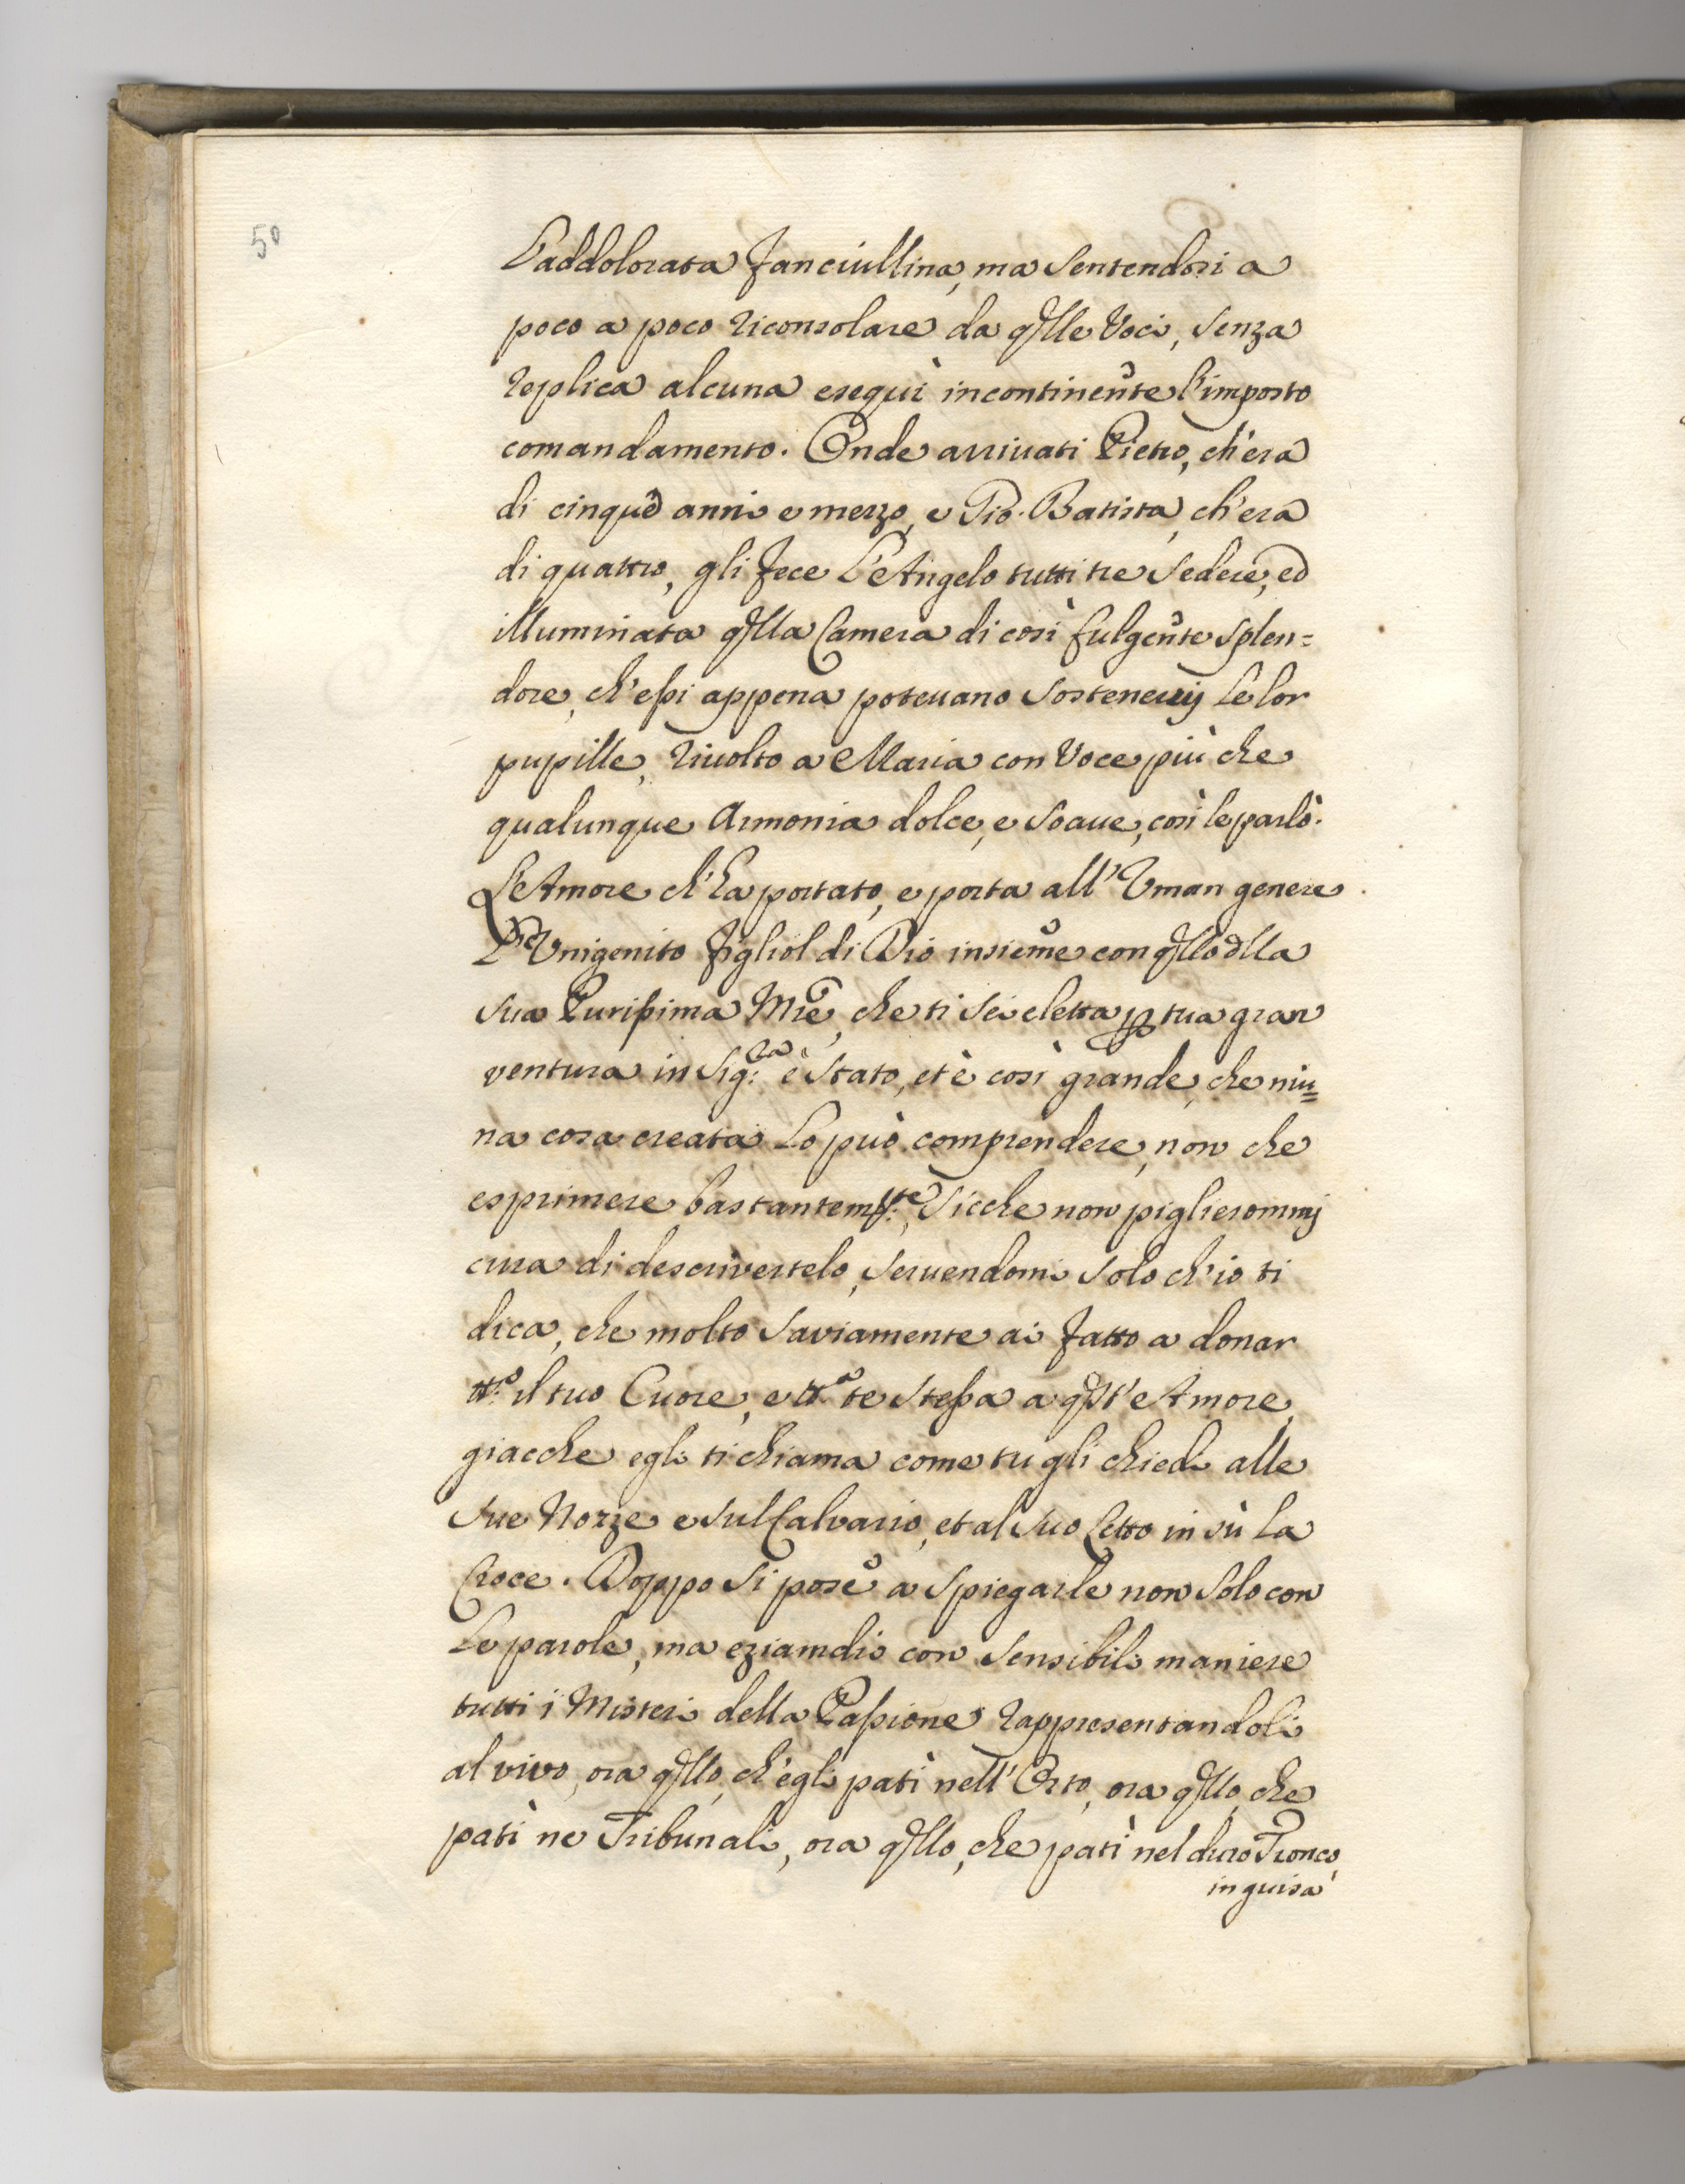 50
L'addolorata fanciullina, ma sentendosi a
poco a poco riconsolare da qlle Voci, senza
replica alcuna eseguì incontinente l'imposto
comandamento. Onde arrivati Pietro, ch'era
di cinque anni e mezzo, e Gio. Batista, ch'era
di quattro, gli fece L'Angelo tutti tre sedere, ed
illuminata qlla Camera di così fulgente splen=
dore, ch'essi appena potevano sostenervij le lor
pupille, rivolto a Maria con Voce più che
qualunque Armonia dolce, e soave, così le parlò.
L'Amore ch'ha portato, e porta all'Uman genere
L'Unigenito figliol di Dio insieme con qllo dlla
sua Purissima Mre, che ti sei eletta p tua gran
ventura in Sig:ra è stato, et è così grande, che niu=
na cosa creata lo può comprendere, non che
esprimere bastantem:te, sicche non piglierommj
cura di descrivertelo, servendomi solo ch'io ti
dica, che molto saviamente ai fatto a donar
tt:o il tuo Cuore, e tt:a te stessa a qst'Amore,
giacche egli ti chiama come tu gli chiedi alle
sue Nozze e sul Calvario, et al suo Letto in sù la
Croce. Doppo si pose a spiegarle non solo con
le parole, ma eziamdio con sensibili maniere
tutti i Misteri della Passione rappresentandoli
al vivo, ora qllo, ch'egli patì nell'Orto, ora qllo, che
patì ne Tribunali, ora qllo, che patì nel duro Tronco,
in guisa